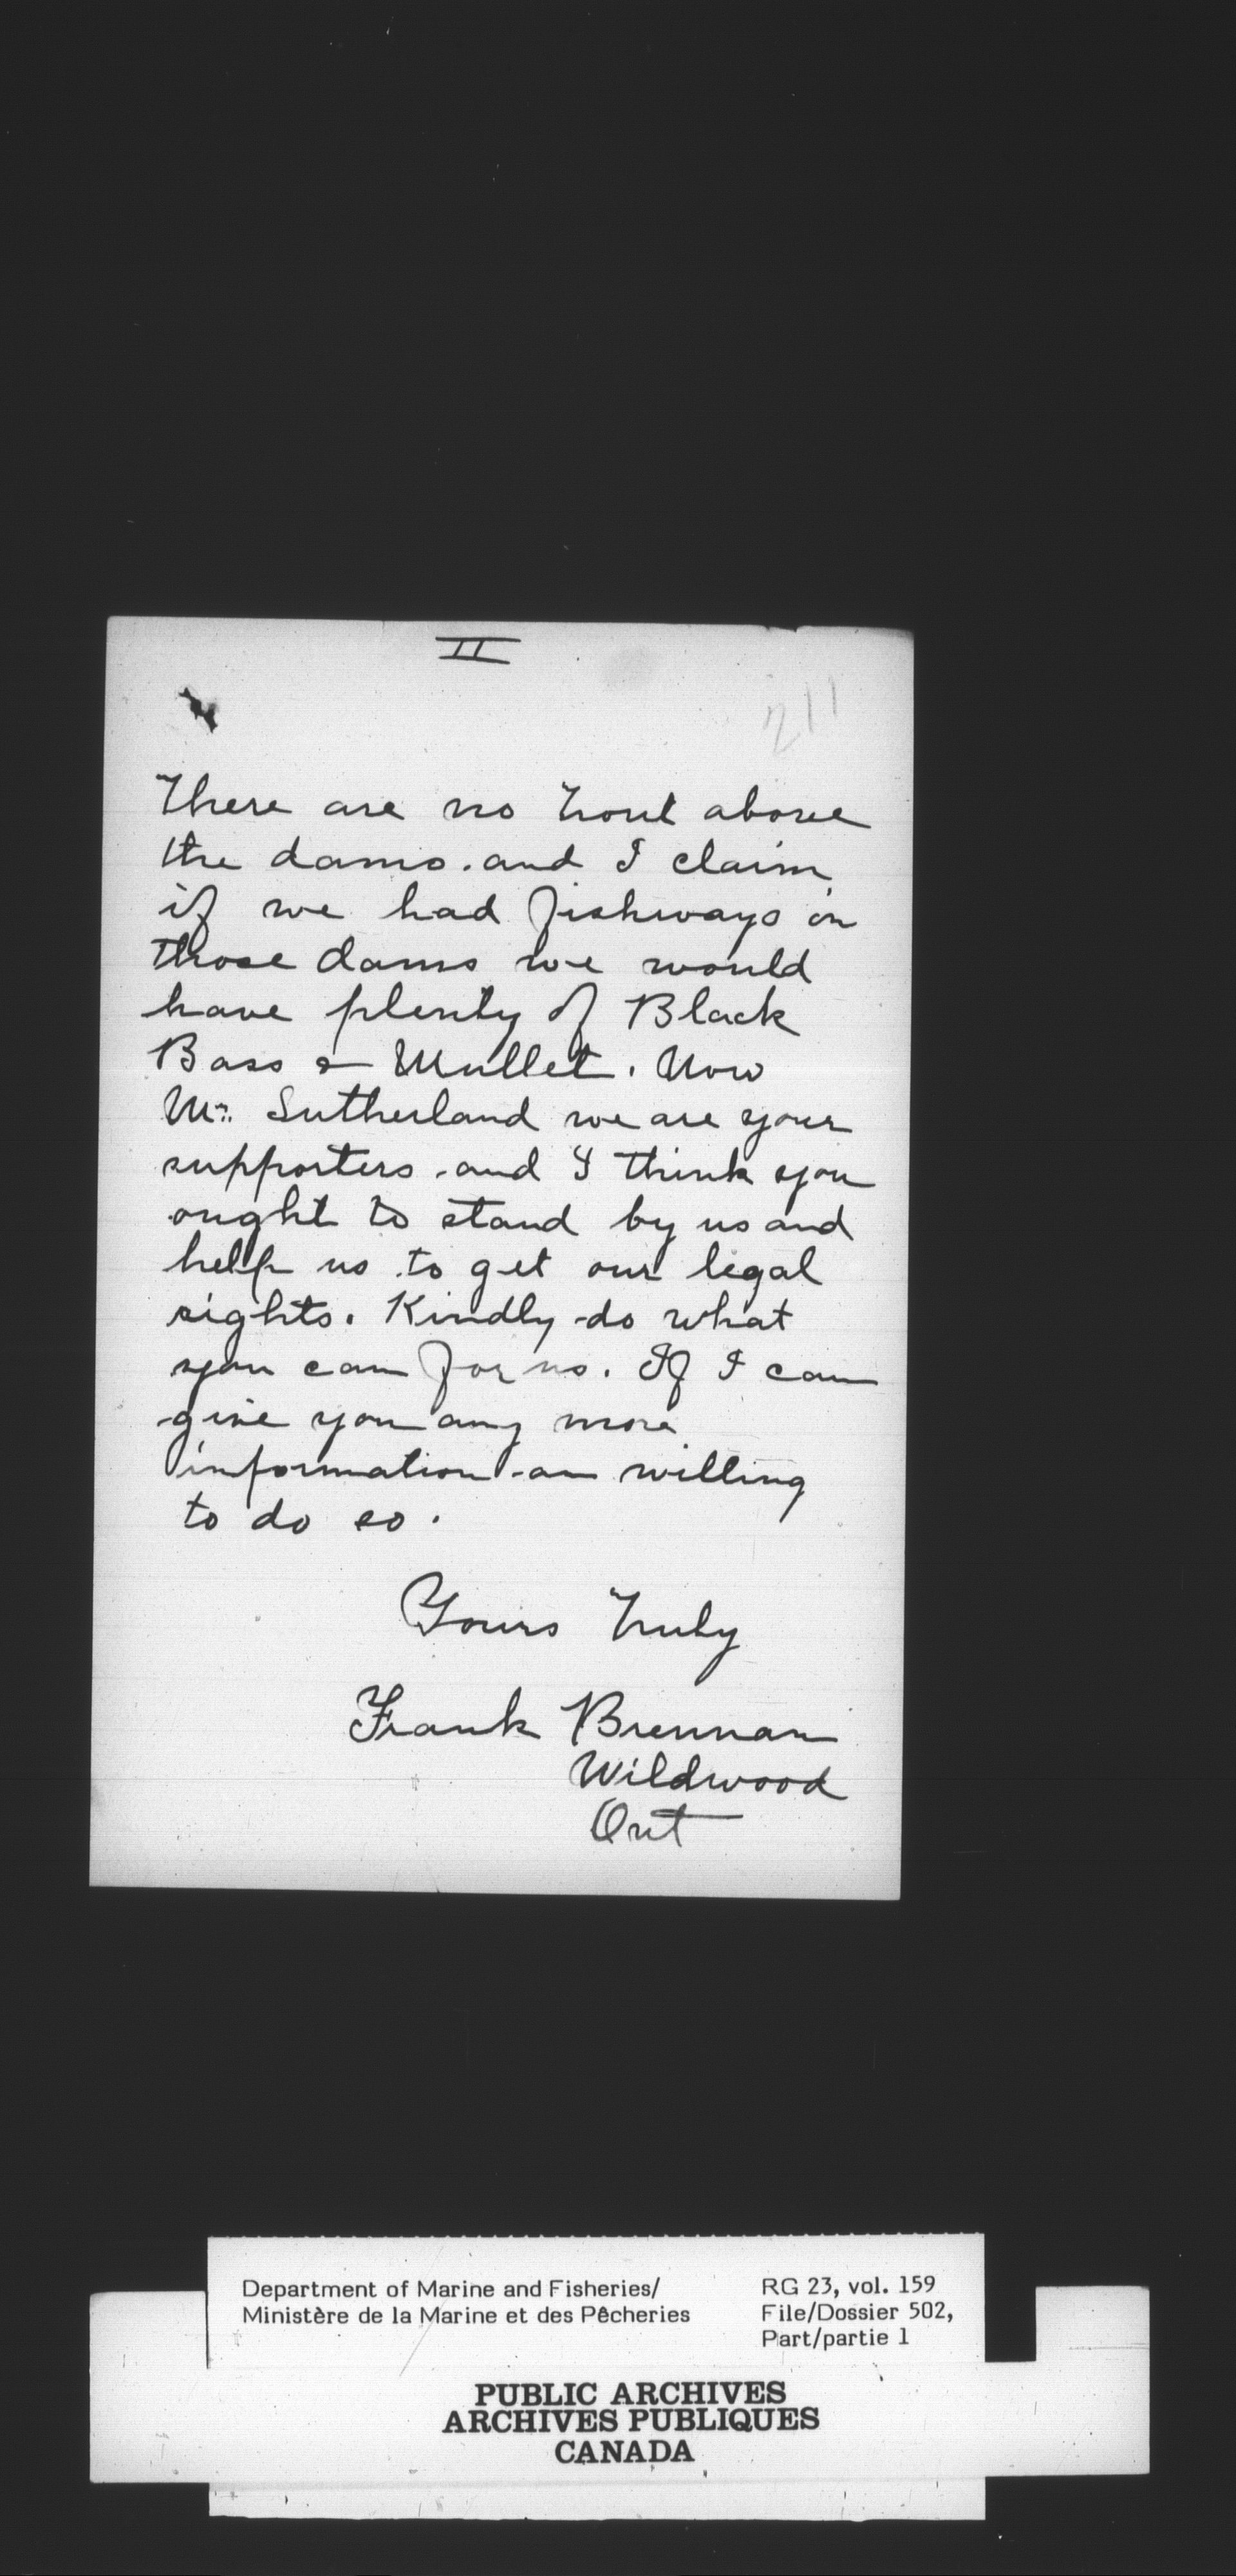 II
211
There are no trout above
the dams. and I claim
if we had fishways in
those dams we would
have plenty of Black
Bass & Mullet. Now
Mr. Sutherland we are your
supporters and I think you
ought to stand by us and
help us to get our legal
rights. Kindly do what
you can for us. If I can
give you any more
information am willing
to do so.
Yours Truly
Frank Brennan
Wildwood
Ont
Department of Marine and Fisheries/
Ministère de la Marine et des Pêcheries
RG 23, vol. 159
File/Dossier 502,
Part/partie 1
PUBLIC ARCHIVES
ARCHIVES PUBLIQUES
CANADA